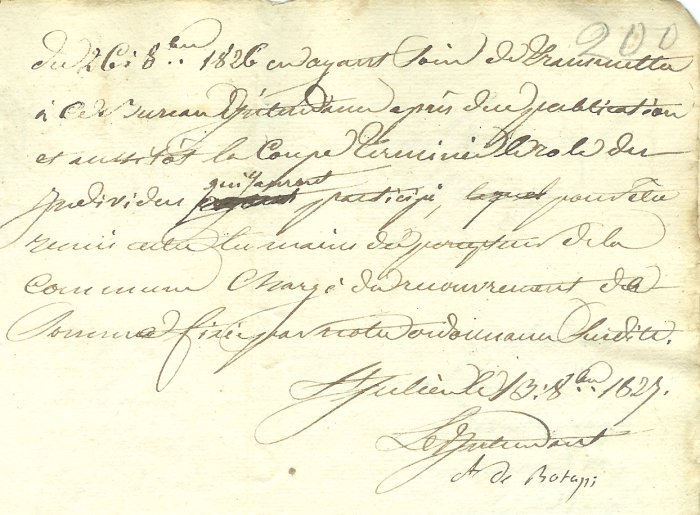 200
du 26: 8bre 1826 en ayant soin de transmettre
à ce Bureau d'Intendance après due publication
et aussitôt la Coupe terminée le role des
qui y auront
Individus participé, lequel pour être
remis entre les mains du percepteur de la
Commune chargé du recouvrement de la
Somme fixée par notre ordonnance susdite.
St Julien le 13: 8bre 1827.
L'Intendant
de